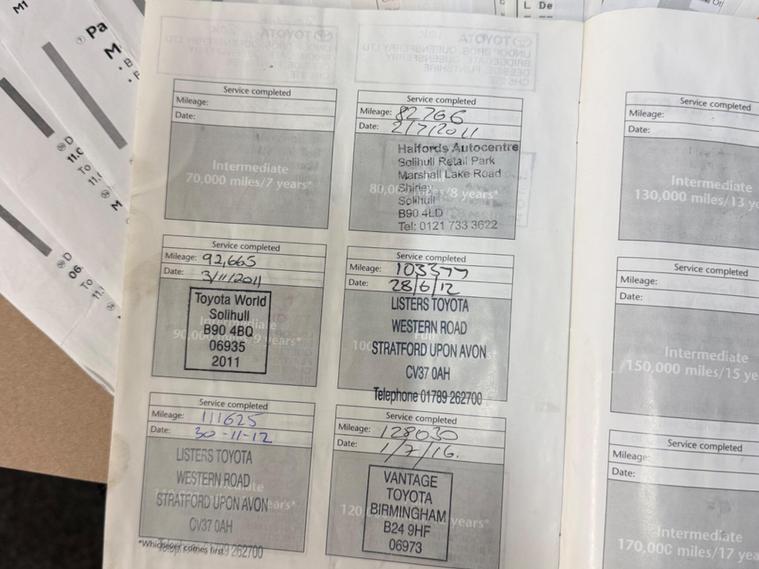 Service completed
Mileage:
Date:
Intermediate
70,000 miles/7 years*
Service completed
Mileage: 82766
Date: 2/7/2011
Halfords Autocentre
Solihull Retail Park
Marshall Lake Road
Shirley
Solihull
B90 4LD
Tel: 0121 733 3622
80,000 miles/8 years*
Service completed
Mileage: 92,665
Date: 3/11/2011
Toyota World
Solihull
B90 4BQ
06935
2011
Service completed
Mileage: 103377
Date: 28/6/12
LISTERS TOYOTA
WESTERN ROAD
STRATFORD UPON AVON
CV37 0AH
Telephone 01789 262700
Service completed
Mileage: 111625
Date: 30-11-12
LISTERS TOYOTA
WESTERN ROAD
STRATFORD UPON AVON
CV37 0AH
262700
*Whichever comes first
Service completed
Mileage: 128030
Date: 1/7/16.
VANTAGE
TOYOTA
BIRMINGHAM
B24 9HF
06973
years*
Service completed
Mileage:
Date:
Intermediate
130,000 miles/13 ye
Service completed
Mileage:
Date:
Intermediate
150,000 miles/15 ye
Service completed
Mileage:
Date:
Intermediate
170,000 miles/17 ye